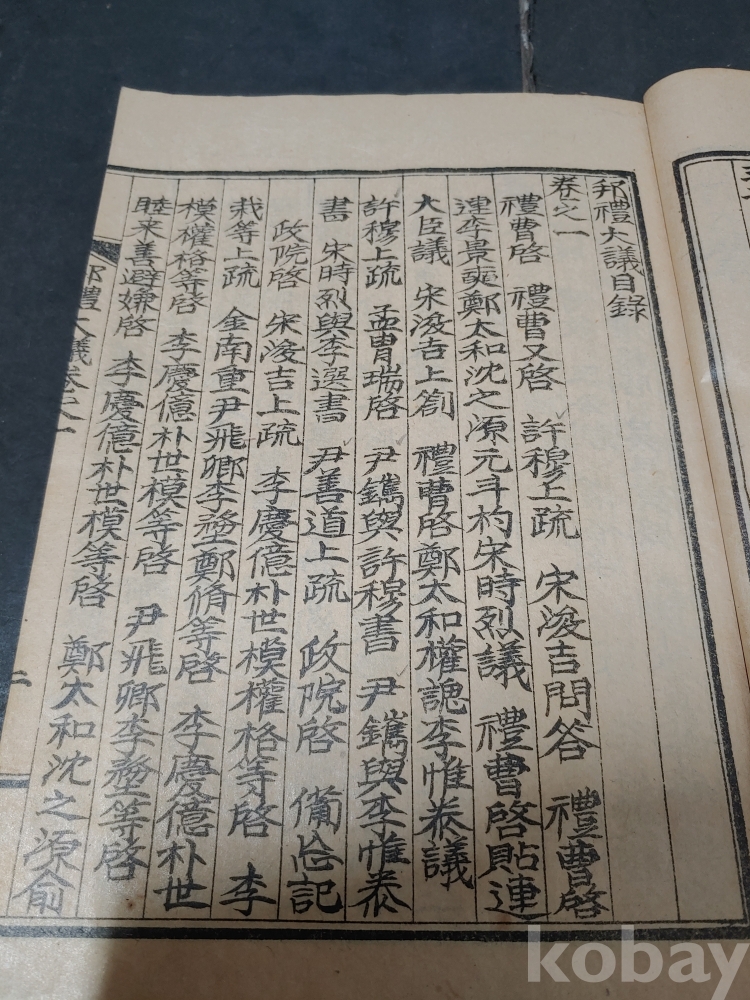 邦禮大議目錄
卷之一
禮曹啓 禮曹又啓 許穆上疏 宋浚吉問答 禮曹啓
連李景奭鄭太和沈之源元斗杓宋時烈議 禮曹啓貼連
大臣議 宋浚吉上箚 禮曹啓鄭太和權諰李惟泰議
許穆上疏 孟胄瑞啓 尹鑴與許穆書 尹鑴與李惟泰
書 宋時烈與李選書 尹善道上疏 政院啓 備忘記
政院啓 宋浚吉上疏 李慶億朴世模權格等啓 李
栽等上疏 金南重尹飛卿李堥鄭脩等啓 李慶億朴世
模權格等啓 李慶億朴世模等啓 尹飛卿李堥等啓
睦来善避嫌啓 李慶億朴世模等啓 鄭太和沈之源俞
邦禮大議卷之一
二
kobay